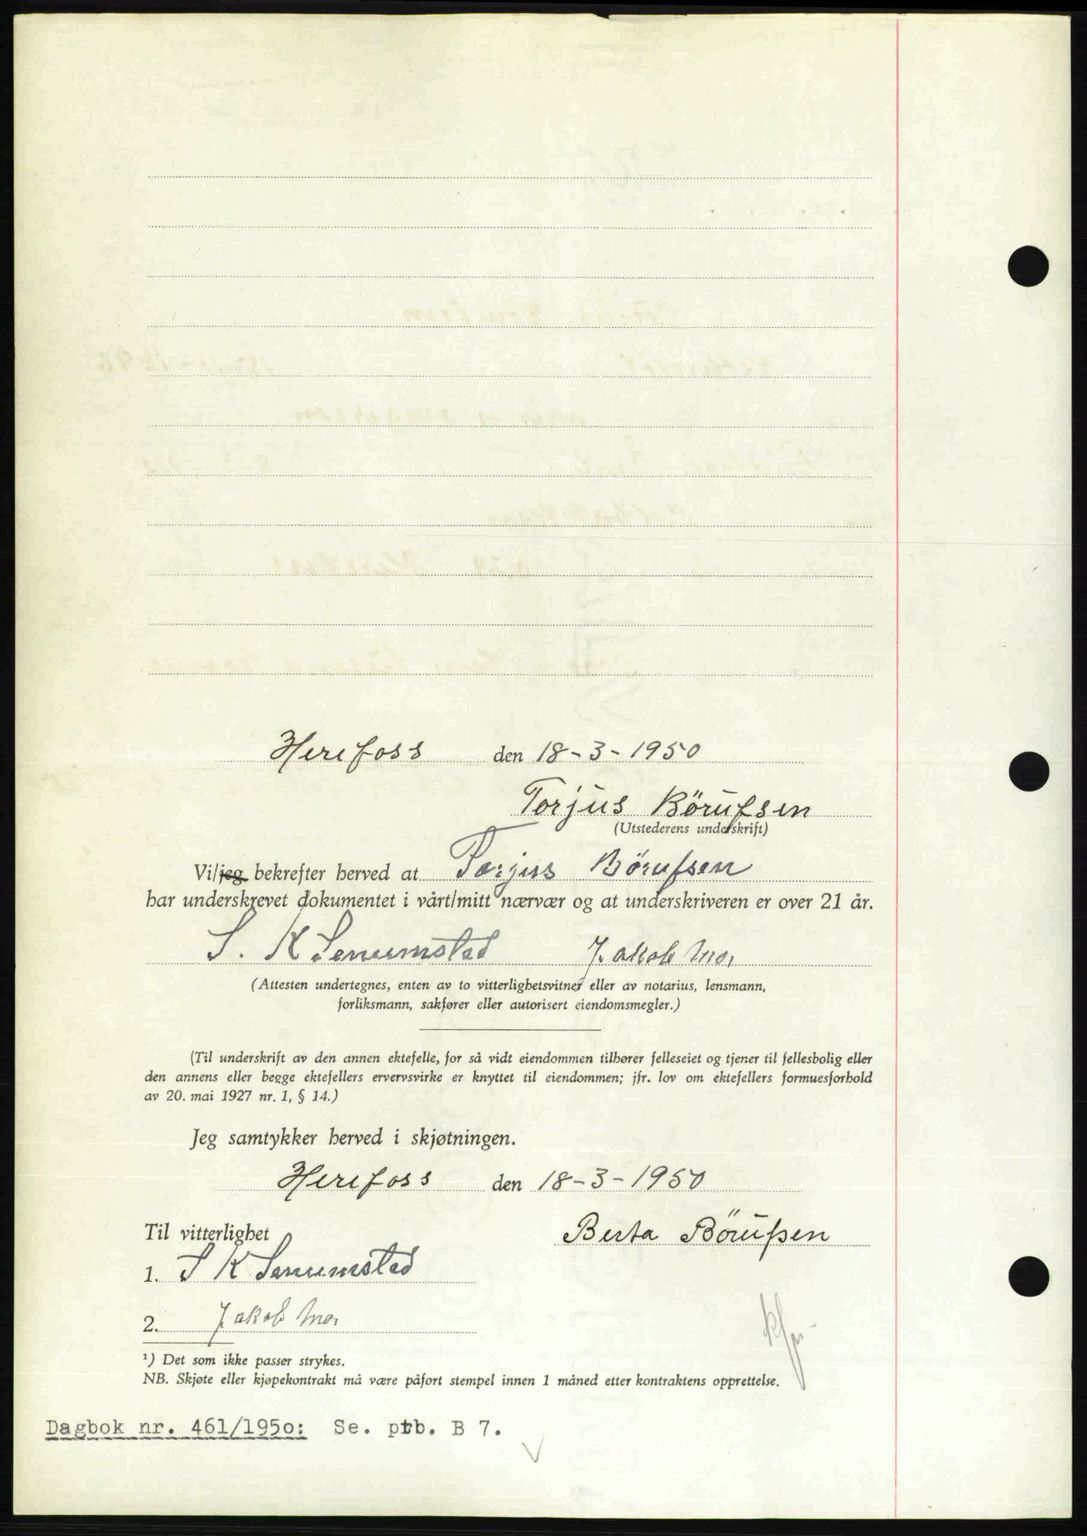 Herefoss den 18-3-1950
Torjus Börufsen
(Utstederens underskrift)
Vi/jeg bekrefter herved at Torjus Börufsen
har underskrevet dokumentet i vårt/mitt nærvær og at underskriveren er over 21 år.
S. K Senumstad Jakob Moi
(Attesten undertegnes, enten av to vitterlighetsvitner eller av notarius, lensmann,
forliksmann, sakfører eller autorisert eiendomsmegler.)
(Til underskrift av den annen ektefelle, for så vidt eiendommen tilhører felleseiet og tjener til fellesbolig eller
den annens eller begge ektefellers ervervsvirke er knyttet til eiendommen; jfr. lov om ektefellers formuesforhold
av 20. mai 1927 nr. 1, § 14.)
Jeg samtykker herved i skjøtningen.
Herefoss den 18-3-1950
Til vitterlighet
Berta Börufsen
1. S K Senumstad
2. Jakob Moi
¹) Det som ikke passer strykes.
NB. Skjøte eller kjøpekontrakt må være påført stempel innen 1 måned etter kontraktens opprettelse.
Dagbok nr. 461/1950: Se. ptb. B 7.